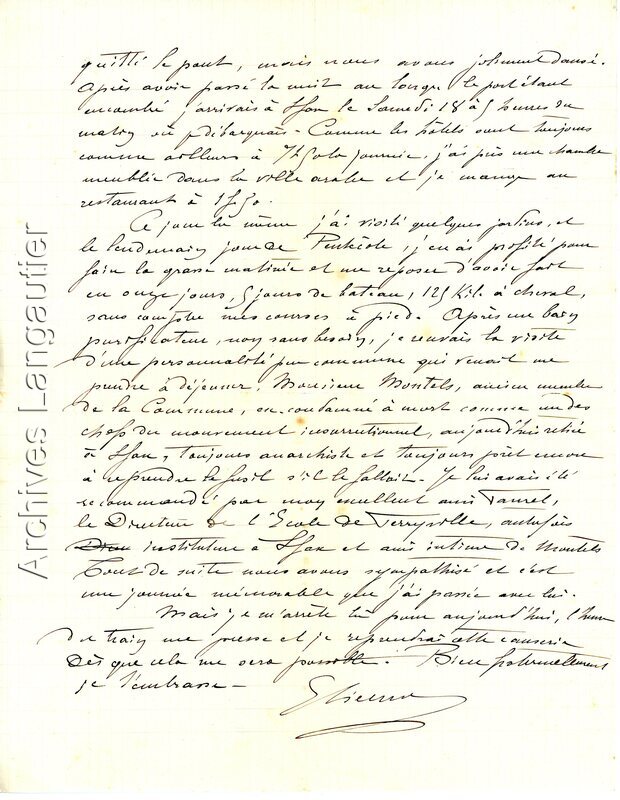 quitté le pont, mais nous avons joliment dansé.
Après avoir passé la nuit au large le port étant
encombré j'arrivais à Sfax le Samedi 18 à 5 heures du
matin où je débarquais - Comme les hôtels sont toujours
comme ailleurs à 7f50 la journée, j'ai pris une chambre
meublée dans la ville arabe et je mange au
restaurant à 1f50.
Ce jour là même j'ai visité quelques jardins, et
le lendemain jour de Pentecôte, j'en ai profité pour
faire la grasse matinée et me reposer d'avoir fait
en onze jours, 5 jours de bateau, 125 Kil. à cheval,
sans compter mes courses à pied. Après un bain
purificateur, non sans besoin, je recevais la visite
d'une personnalité peu commune qui venait me
prendre à déjeuner, Monsieur Montels, ancien membre
de la Commune, ex-condamné à mort comme un des
chefs du mouvement insurrectionnel, aujourd'hui retiré
à Sfax, toujours anarchiste et toujours prêt encore
à reprendre le fusil s'il le fallait. Je lui avais été
recommandé par mon excellent ami Taurel,
le Directeur de l'École de Ferryville, autrefois
instituteur à Sfax et ami intime de Montels
Tout de suite nous avons sympathisé et c'est
une journée mémorable que j'ai passée avec lui.
Mais je m'arrête là pour aujourd'hui, l'heure
du train me presse et je reprendrai cette causerie
dès que cela me sera possible. Bien fraternellement
je t'embrasse -
Etienne
Archives Langautier